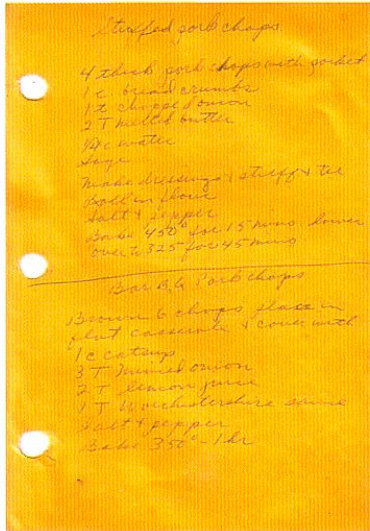 Stuffed pork chops
4 thick pork chops with pocket
1 c bread crumbs
1 t chopped onion
2 T melted butter
1/4 c water
Sage
Make dressing & stuff & tie
Roll in flour
Salt & pepper
Bake 450° for 15 mins lower
oven to 325 for 45 mins
Bar B, Q Pork chops
Brown 6 chops place in
flat casserole & cover with
1 c catsup
3 T minced onion
2 T lemon juice
1 T Worchestershire sauce
Salt & pepper
Bake 350° - 1 hr